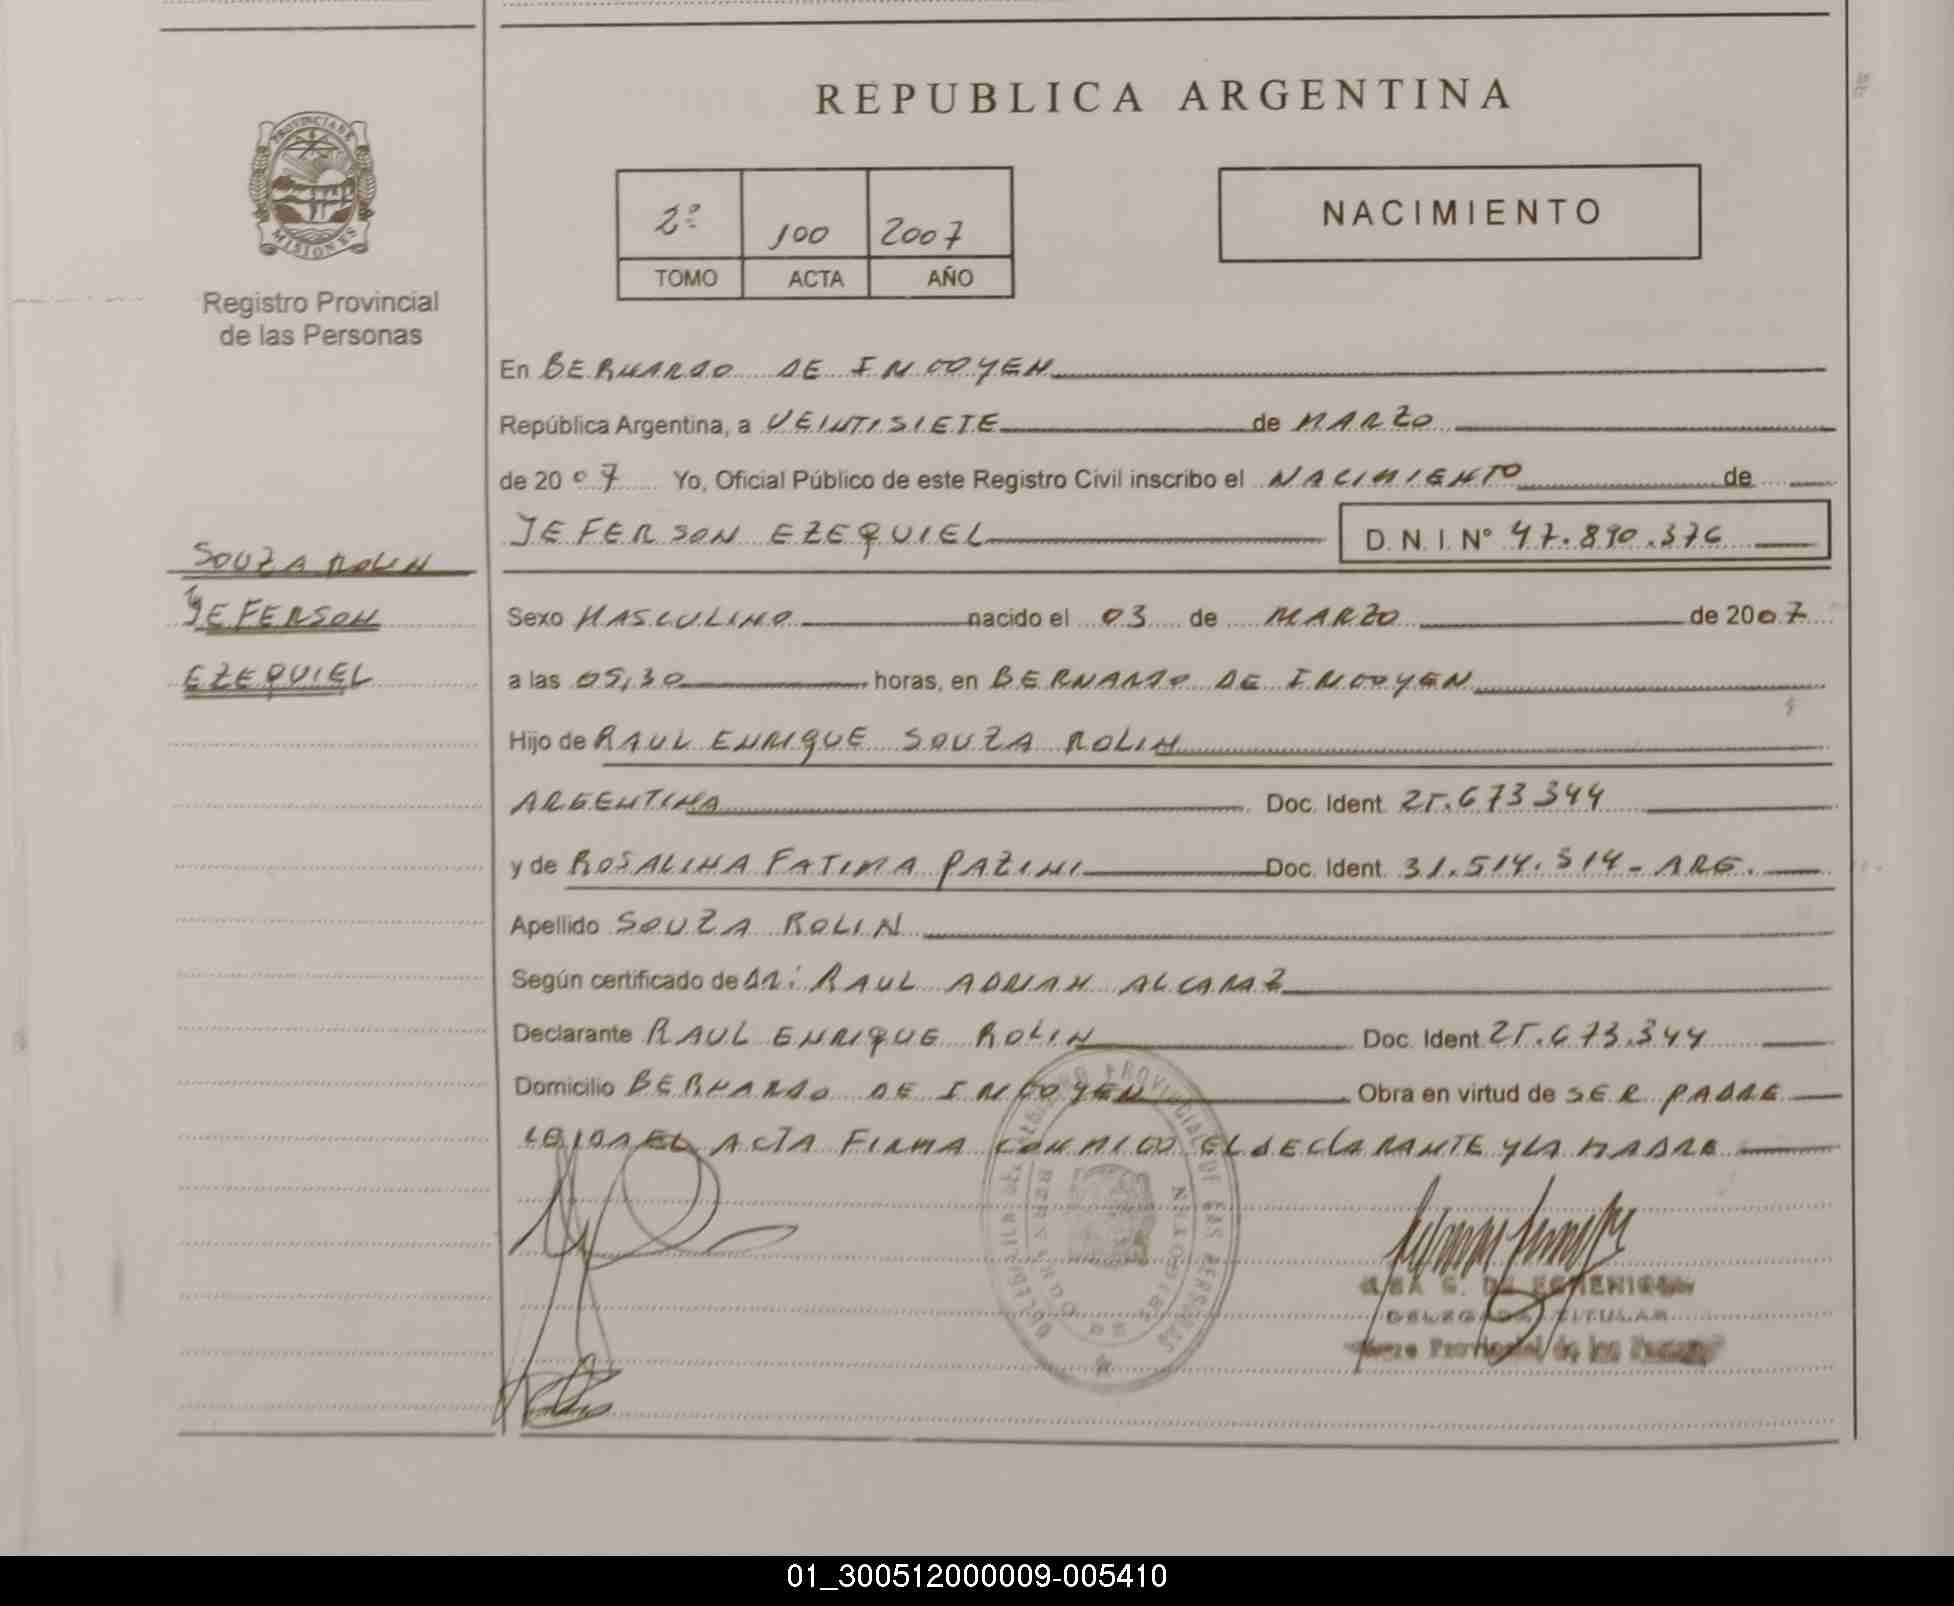 REPUBLICA ARGENTINA
PROVINCIA DE
MISIONES
Registro Provincial
de las Personas
2º 100 2007
TOMO ACTA AÑO
NACIMIENTO
En BERNARDO DE IRIGOYEN
República Argentina, a VEINTISIETE de MARZO
de 2007 Yo, Oficial Público de este Registro Civil inscribo el NACIMIENTO de
JEFERSON EZEQUIEL D.N.I. Nº 47.890.376
SOUZA ROLIN
JEFERSON
EZEQUIEL
Sexo MASCULINO nacido el 03 de MARZO de 2007
a las 05,30 horas, en BERNARDO DE IRIGOYEN
Hijo de RAUL ENRIQUE SOUZA ROLIN
ARGENTINA Doc. Ident. 25.673.344
y de ROSALINA FATIMA PAZINI Doc. Ident. 31.514.514 - ARG.
Apellido SOUZA ROLIN
Según certificado de DR: RAUL ADRIAN ALCARAZ
Declarante RAUL ENRIQUE ROLIN Doc. Ident 25.673.344
Domicilio BERNARDO DE IRIGOYEN Obra en virtud de SER PADRE
LEIDA EL ACTA FIRMA CONMIGO EL DECLARANTE Y LA MADRE
DELEGADA TITULAR
Provincial de las
01_300512000009-005410